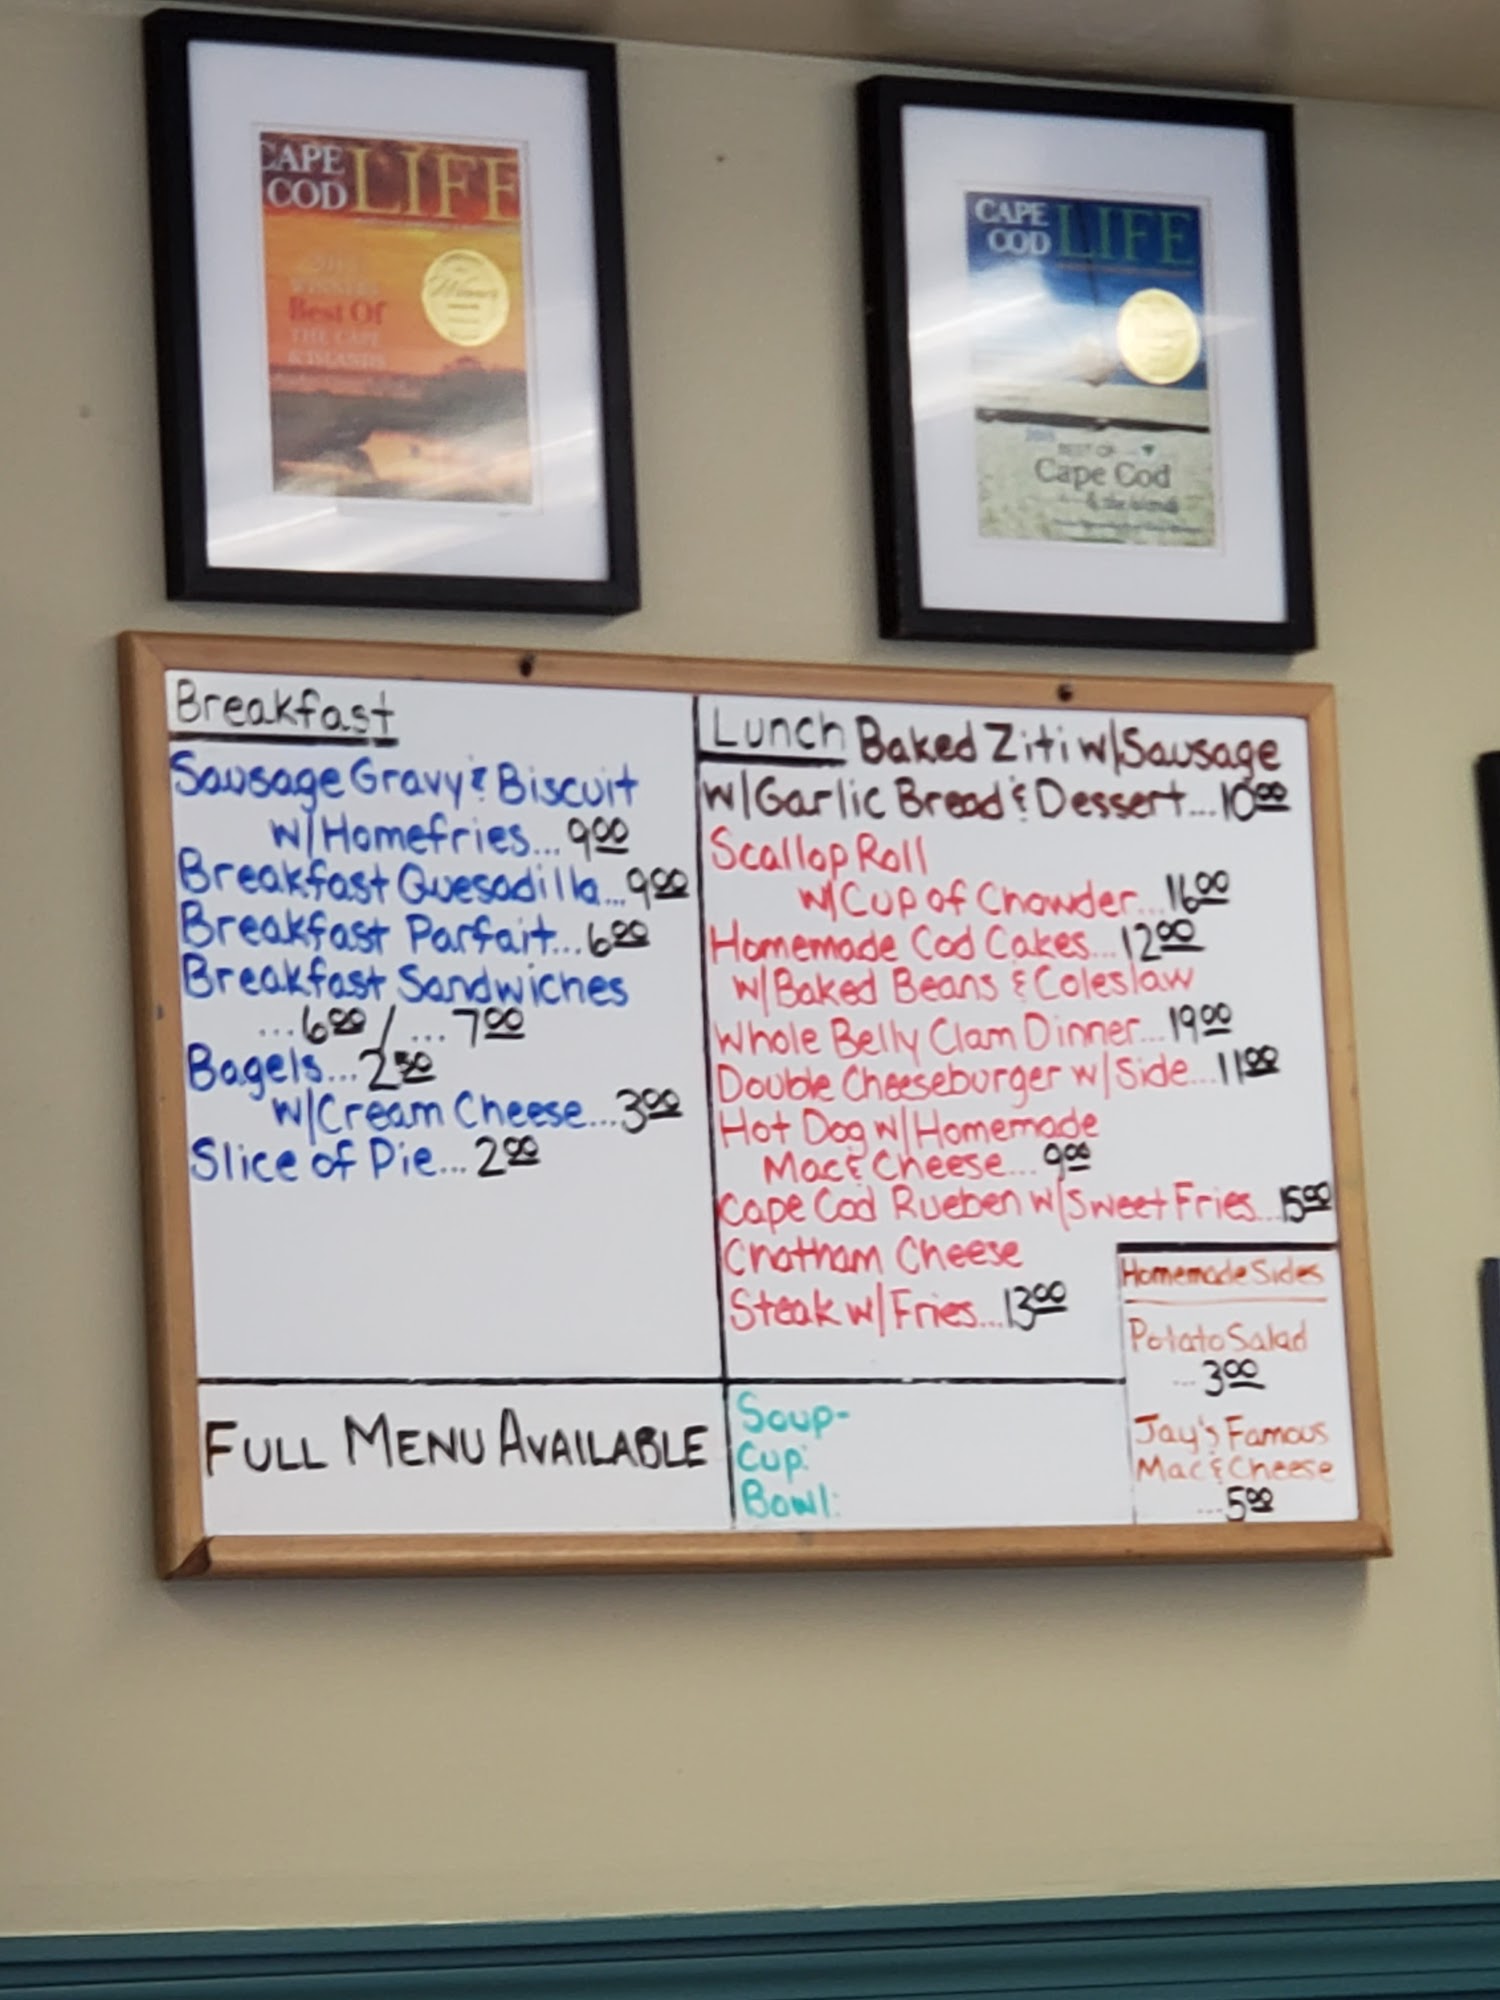 CAPE
COD LIFE
Winner
WINNERS
Best Of
THE CAPE
& ISLANDS
CAPE
COD LIFE
BEST OF
Cape Cod
& the islands
Breakfast
Sausage Gravy & Biscuit
w/Homefries...9.00
Breakfast Quesadilla...9.00
Breakfast Parfait...6.00
Breakfast Sandwiches
...6.00 / ...7.00
Bagels...2.50
w/Cream Cheese...3.00
Slice of Pie...2.00
Lunch Baked Ziti w/Sausage
w/Garlic Bread & Dessert...10.00
Scallop Roll
w/Cup of Chowder...16.00
Homemade Cod Cakes...12.00
w/Baked Beans & Coleslaw
Whole Belly Clam Dinner...19.00
Double Cheeseburger w/Side...11.00
Hot Dog w/Homemade
Mac & Cheese...9.00
Cape Cod Rueben w/Sweet Fries...15.00
Chatham Cheese
Steak w/Fries...13.00
Homemade Sides
Potato Salad
...3.00
Jay's Famous
Mac & Cheese
...5.00
FULL MENU AVAILABLE
Soup-
Cup:
Bowl: